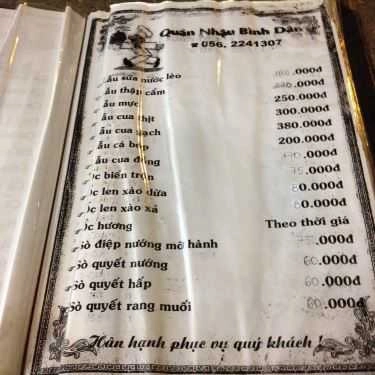 Quán Nhậu Bình Dân
☎ 056. 2241307
ẩu sứa nước lèo .000đ
ẩu thập cẩm .000đ
ẩu mực 250.000đ
ẩu cua thịt 300.000đ
ẩu cua gạch 380.000đ
ẩu cá bóp 200.000đ
ẩu cua đồng .000đ
ốc biển trộn 75.000đ
ốc len xào dừa 80.000đ
ốc len xào xả 80.000đ
ốc hương Theo thời giá
Sò điệp nướng mỡ hành 75.000đ
Sò quyết nướng 60.000đ
Sò quyết hấp 60.000đ
Sò quyết rang muối 60.000đ
Hân hạnh phục vụ quý khách !